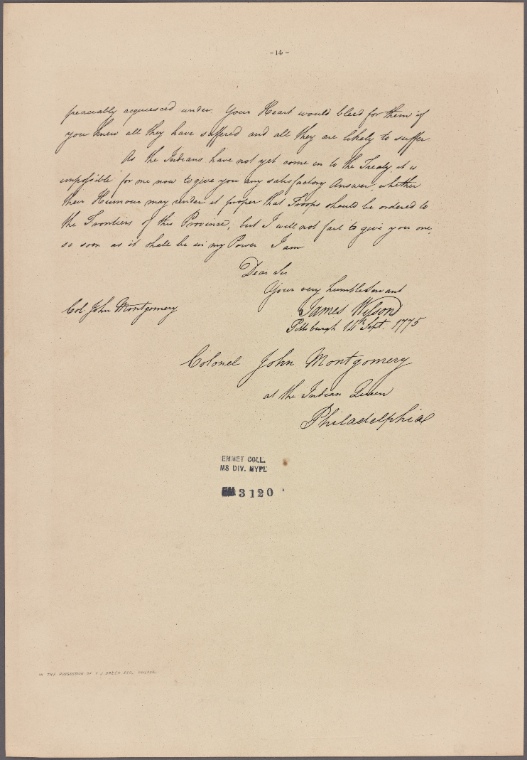 - 16 -
peaceably acquiesced under. Your Heart would bleed for them if
you knew all they have suffered and all they are likely to suffer
As the Indians have not yet come in to the Treaty it is
impossible for me now to give you any satisfactory Answer, whether
their Humour may render it proper that Troops should be ordered to
the Frontiers of this Province, but I will not fail to give you one,
so soon as it shall be in my Power I am
Dear Sir
Your very humble Servant
James Wilson
Col. John Montgomery
Pittsburgh 14th Sept. 1775
Colonel John Montgomery
at the Indian Queen
Philadelphia
EMMET COLL.
MS DIV. NYPL
EM 3120
IN THE POSSESSION OF